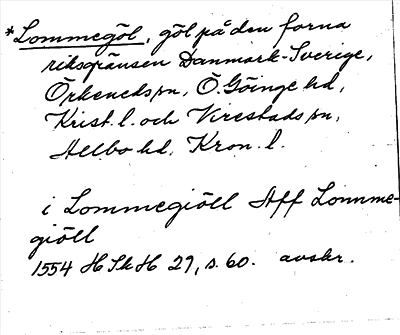 *Lommegöl, göl på den forna
riksgränsen Danmark-Sverige,
Örkeneds sn, Ö. Göinge hd,
Krist. l. och Virestads sn,
Allbo hd, Kron. l.
i Lommegiöll Aff Lomme-
giöll
1554 HSkH 29, s. 60. avskr.